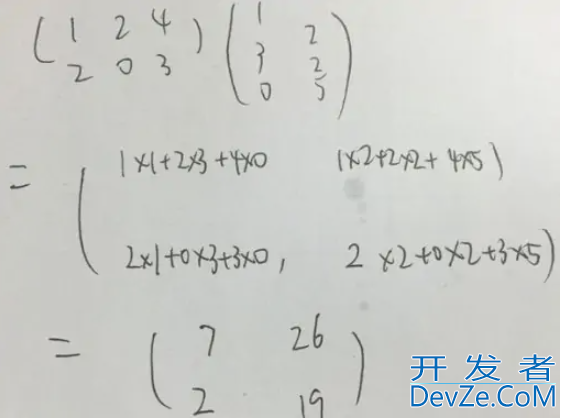 ( 1 2 4 ) ( 1 2
2 0 3 3 2
0 5 )
= ( 1×1+2×3+4×0 1×2+2×2+4×5 )
2×1+0×3+3×0, 2×2+0×2+3×5 )
= ( 7 26 )
2 19
开发者
DevZe.CoM